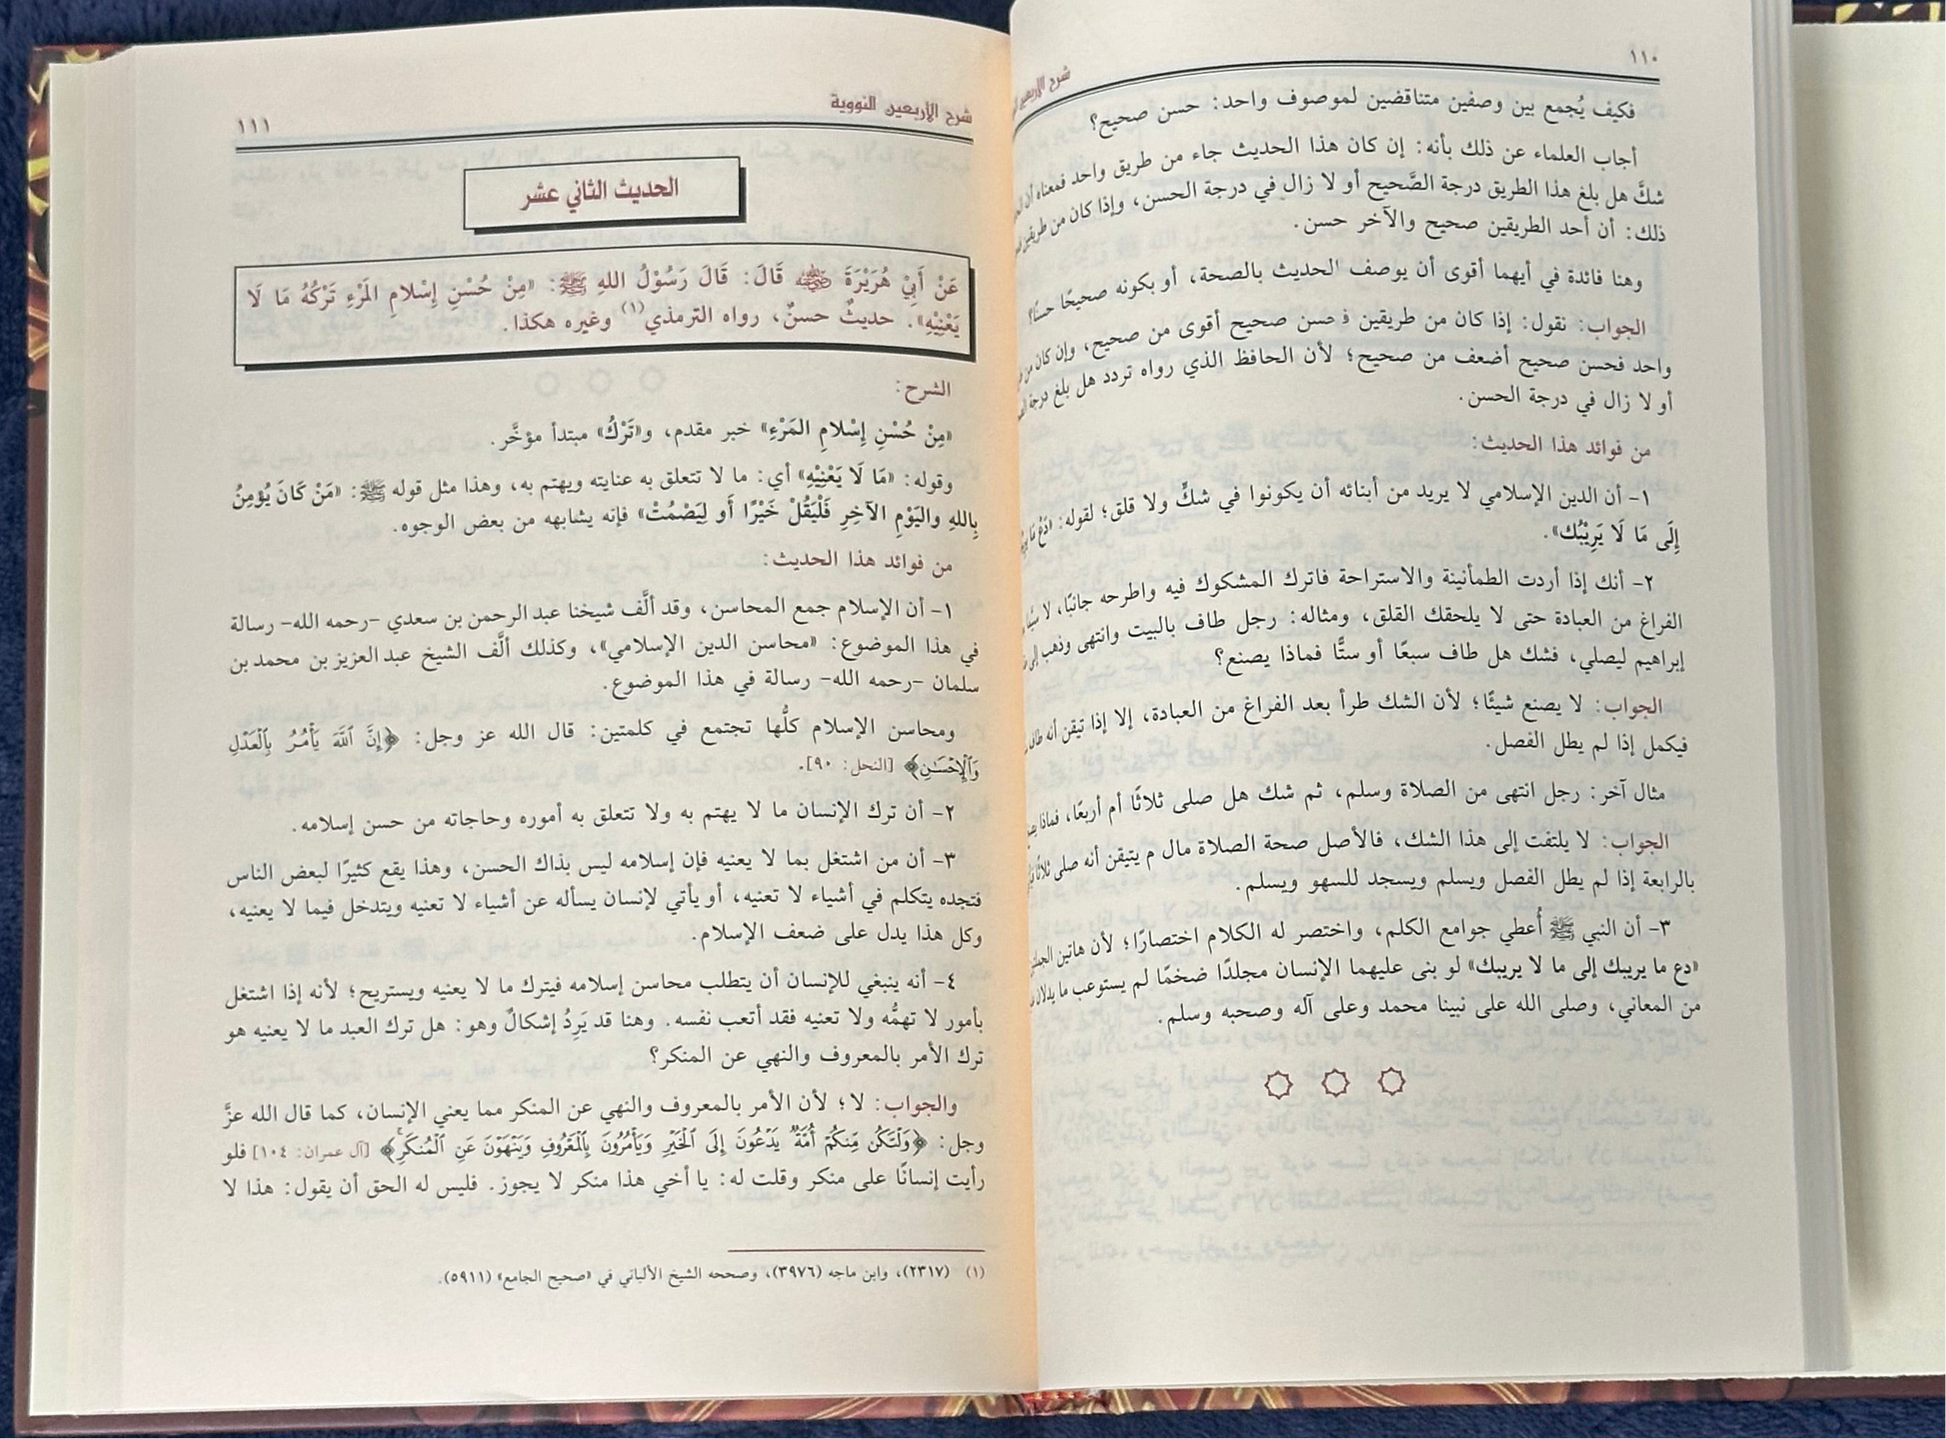 ١١٠
شرح الأربعين
فكيف يُجمع بين وصفين متناقضين لموصوف واحد: حسن صحيح؟
أجاب العلماء عن ذلك بأنه: إن كان هذا الحديث جاء من طريق واحد فمعناه أن
شكَّ هل بلغ هذا الطريق درجة الصَّحيح أو لا زال في درجة الحسن، وإذا كان من طريقين
ذلك: أن أحد الطريقين صحيح والآخر حسن.
وهنا فائدة في أيهما أقوى أن يوصف الحديث بالصحة، أو بكونه صحيحًا حسنًا؟
الجواب: نقول: إذا كان من طريقين فحسن صحيح أقوى من صحيح، وإن كان من
واحد فحسن صحيح أضعف من صحيح؛ لأن الحافظ الذي رواه تردد هل بلغ درجة
أو لا زال في درجة الحسن.
من فوائد هذا الحديث:
١- أن الدين الإسلامي لا يريد من أبنائه أن يكونوا في شكٍّ ولا قلق؛ لقوله: «دَعْ مَا
إِلَى مَا لَا يَرِيْبُك».
٢- أنك إذا أردت الطمأنينة والاستراحة فاترك المشكوك فيه واطرحه جانبًا، لا سيَّما
الفراغ من العبادة حتى لا يلحقك القلق، ومثاله: رجل طاف بالبيت وانتهى وذهب إلى
إبراهيم ليصلي، فشك هل طاف سبعًا أو ستًّا فماذا يصنع؟
الجواب: لا يصنع شيئًا؛ لأن الشك طرأ بعد الفراغ من العبادة، إلا إذا تيقن أنه طاف
فيكمل إذا لم يطل الفصل.
مثال آخر: رجل انتهى من الصلاة وسلم، ثم شك هل صلى ثلاثًا أم أربعًا، فماذا
الجواب: لا يلتفت إلى هذا الشك، فالأصل صحة الصلاة مال م يتيقن أنه صلى ثلاثًا
بالرابعة إذا لم يطل الفصل ويسلم ويسجد للسهو ويسلم.
٣- أن النبي ﷺ أُعطي جوامع الكلم، واختصر له الكلام اختصارًا؛ لأن هاتين
«دع ما يريبك إلى ما لا يريبك» لو بنى عليهما الإنسان مجلدًا ضخمًا لم يستوعب ما يدلان
من المعاني، وصلى الله على نبينا محمد وعلى آله وصحبه وسلم.
شرح الأربعين النووية
١١١
الحديث الثاني عشر
عَنْ أَبِيْ هُرَيْرَةَ رضي الله عنه قَالَ: قَالَ رَسُوْلُ اللهِ ﷺ: «مِنْ حُسْنِ إِسْلامِ المَرْءِ تَرْكُهُ مَا لَا
يَعْنِيْهِ». حديثٌ حسنٌ، رواه الترمذي(١) وغيره هكذا.
الشرح:
«مِنْ حُسْنِ إِسْلامِ المَرْءِ» خبر مقدم، و«تَرْكُ» مبتدأ مؤخَّر.
وقوله: «مَا لَا يَعْنِيْهِ» أي: ما لا تتعلق به عنايته ويهتم به، وهذا مثل قوله ﷺ: «مَنْ كَانَ يُؤمِنُ
بِاللهِ واليَوْمِ الآخِرِ فَلْيَقُلْ خَيْرًا أَو لِيَصْمُتْ» فإنه يشابهه من بعض الوجوه.
من فوائد هذا الحديث:
١- أن الإسلام جمع المحاسن، وقد ألَّف شيخنا عبد الرحمن بن سعدي -رحمه الله- رسالة
في هذا الموضوع: «محاسن الدين الإسلامي»، وكذلك ألَّف الشيخ عبد العزيز بن محمد بن
سلمان -رحمه الله- رسالة في هذا الموضوع.
ومحاسن الإسلام كلُّها تجتمع في كلمتين: قال الله عز وجل: ﴿إِنَّ ٱللَّهَ يَأْمُرُ بِٱلْعَدْلِ
وَٱلْإِحْسَـٰنِ﴾ [النحل: ٩٠].
٢- أن ترك الإنسان ما لا يهتم به ولا تتعلق به أموره وحاجاته من حسن إسلامه.
٣- أن من اشتغل بما لا يعنيه فإن إسلامه ليس بذاك الحسن، وهذا يقع كثيرًا لبعض الناس
فتجده يتكلم في أشياء لا تعنيه، أو يأتي لإنسان يسأله عن أشياء لا تعنيه ويتدخل فيما لا يعنيه،
وكل هذا يدل على ضعف الإسلام.
٤- أنه ينبغي للإنسان أن يتطلب محاسن إسلامه فيترك ما لا يعنيه ويستريح؛ لأنه إذا اشتغل
بأمور لا تهمُّه ولا تعنيه فقد أتعب نفسه. وهنا قد يَرِدُ إشكالٌ وهو: هل ترك العبد ما لا يعنيه هو
ترك الأمر بالمعروف والنهي عن المنكر؟
والجواب: لا؛ لأن الأمر بالمعروف والنهي عن المنكر مما يعني الإنسان، كما قال الله عزَّ
وجل: ﴿وَلْتَكُن مِّنكُمْ أُمَّةٌ يَدْعُونَ إِلَى ٱلْخَيْرِ وَيَأْمُرُونَ بِٱلْمَعْرُوفِ وَيَنْهَوْنَ عَنِ ٱلْمُنكَرِ﴾ [آل عمران: ١٠٤] فلو
رأيت إنسانًا على منكر وقلت له: يا أخي هذا منكر لا يجوز. فليس له الحق أن يقول: هذا لا
(١) (٢٣١٧)، وابن ماجه (٣٩٧٦)، وصححه الشيخ الألباني في «صحيح الجامع» (٥٩١١).